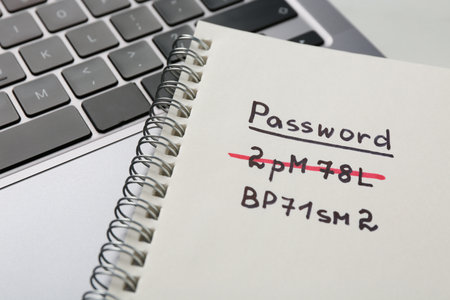 Password
2pM78L
BP71sM2